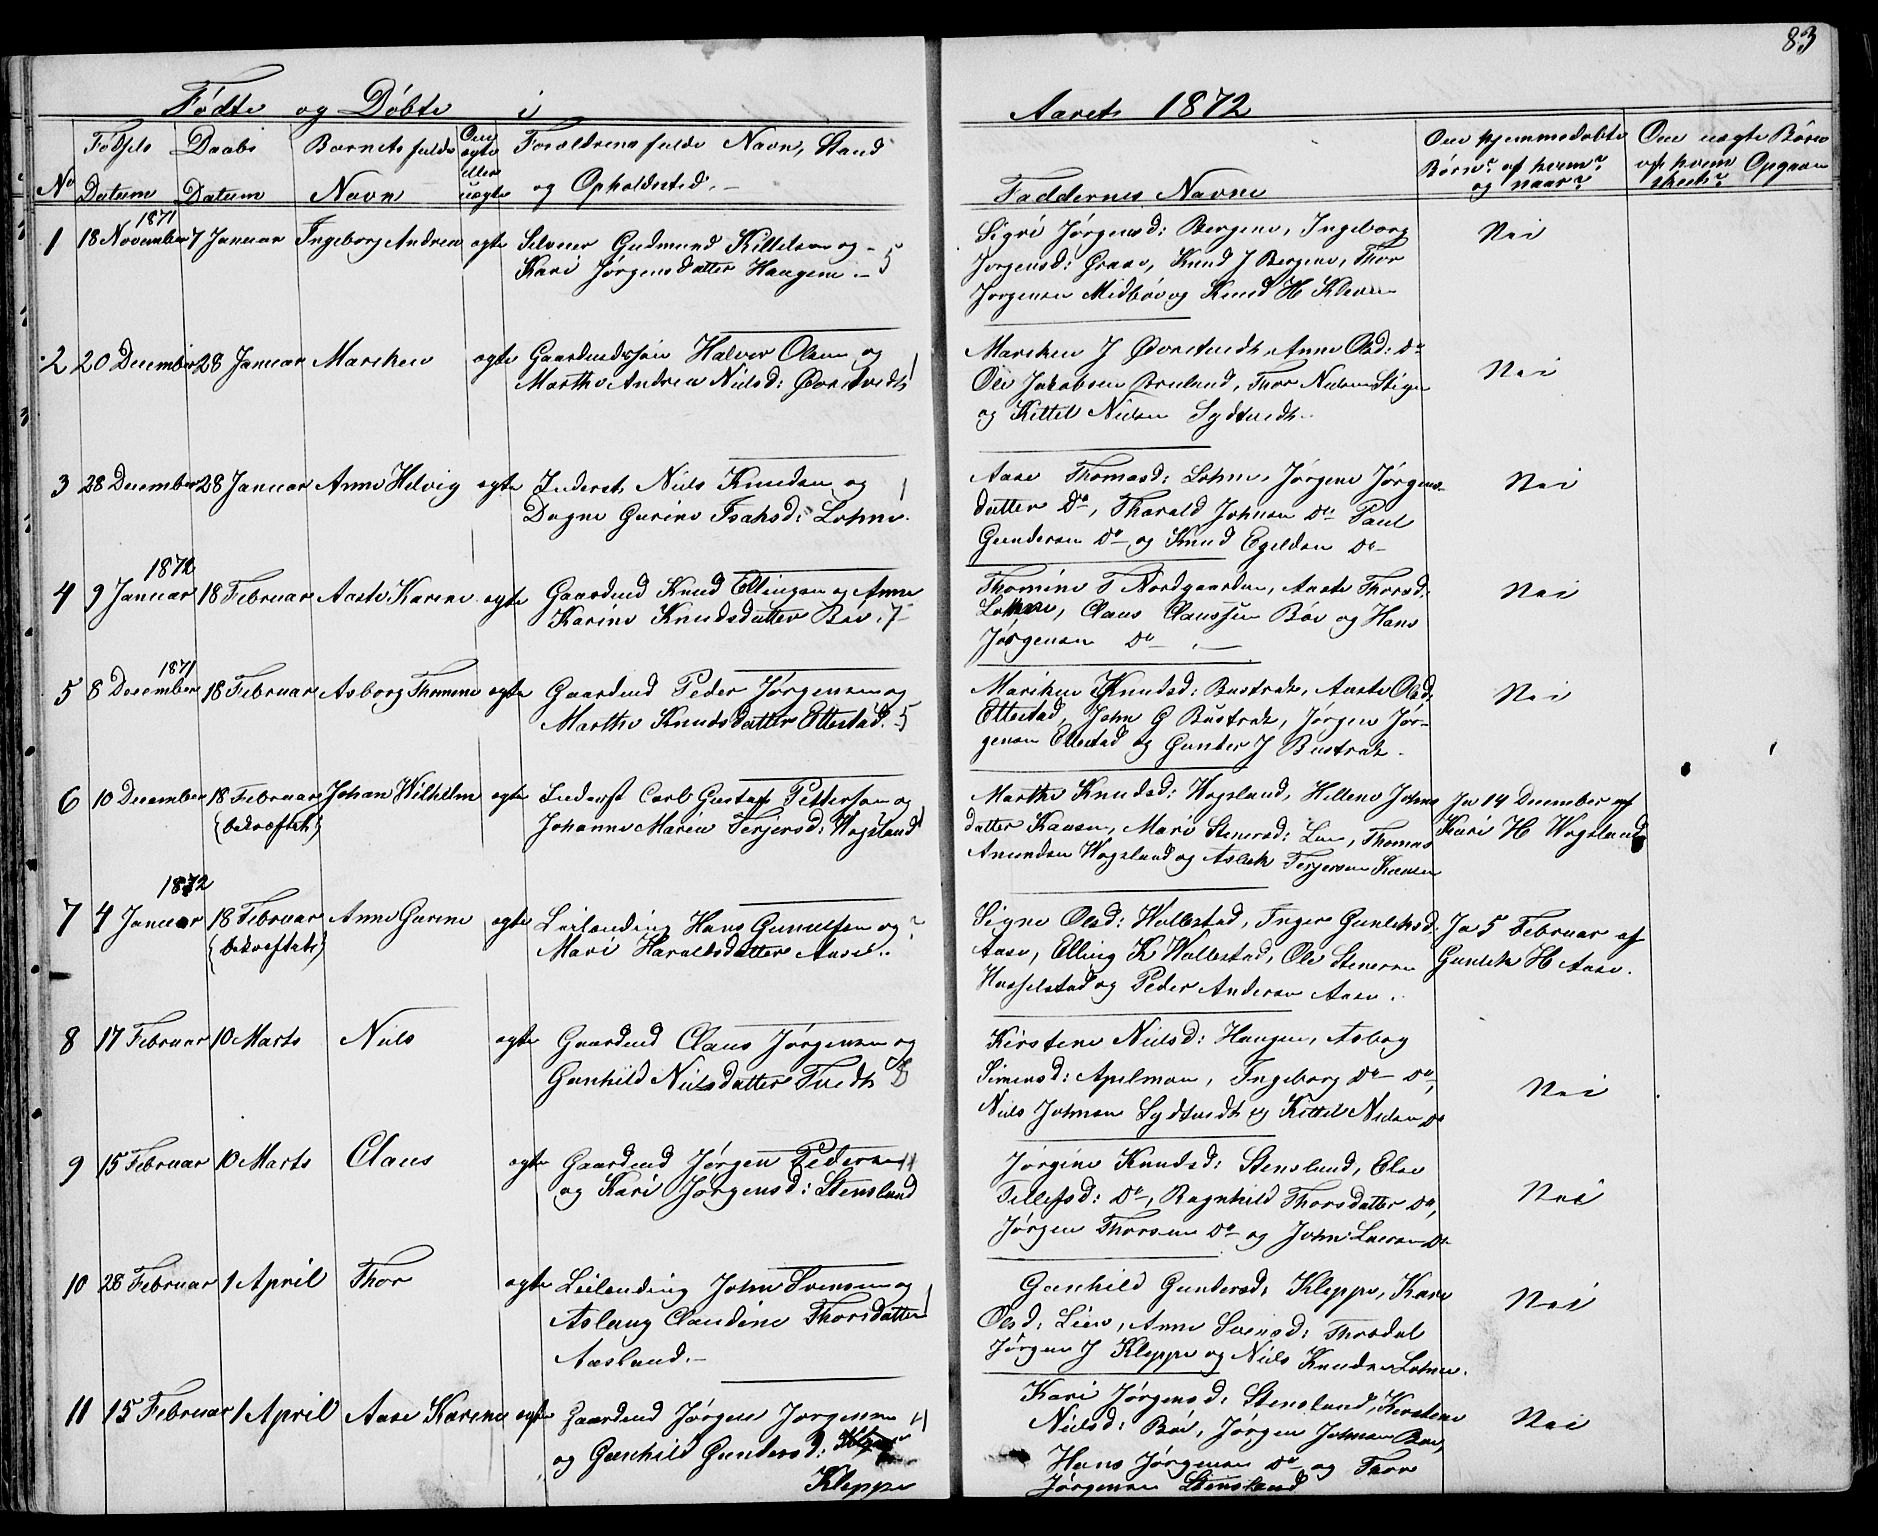 83
Fødte og Døbte i Aaret 1872
No
Fødsels Datum
Daabs Datum
Barnets fulde Navn
Om ægte eller uægte
Forældrenes fulde Navn, Stand
og Opholdssted. –
Faddernes Navne
Om hjemmedøbte
Børn? af hvem?
og naar?
Om uægte Børn
af hvem Opgaven
skeet?
1871
1 18 November 7 Januar Ingeborg Andrea ægte Selveier Gudmund Kittelsen og –
Kari Jørgensdatter Haugene. – 5
Sigri Jørgensd: Bergene, Ingeborg
Jørgensd: Graae, Knud J Bergene, Thor
Jørgensen Midbøe og Knud H Kleven
Nei
2 20 December 28 Januar Mariken ægte Gaardmdssøn Halvor Olsen og
Marthe Andrea Nielsd: Øvretvedt
Mariken J Øvretvedt, Anne Olsd: Do
Ole Jakobsen Bruland, Thor Nielsen Stigen
og Kittel Nielsen Sydtvedt.
Nei
3 28 December 28 Januar Anne Helvig ægte Inderst Niels Knudsen og
Dagne Gurine Isaksd: Lohne.
Aase Thomasd: Lohne, Jørgine Jørgens-
datter Do, Tharald Johnsen Do Paul
Gundersen Do og Knud Egeldsen Do
Nei
1872
4 9 Januar 18 Februar Aaste Karine ægte Gaardmd Knud Ellingsen og Anne
Karine Knudsdatter Bøe. 7
Thomine T Nordgaarden, Aaste Thorsd:
Lohne, Claus Claussen Bøe og Hans
Jørgensen Do –
Nei
1871
5 8 December 18 Februar Asborg Thomine ægte Gaardmd Peder Jørgensen og
Marthe Knudsdatter Ettestad. 5
Mariken Knudsd: Bustrak, Aaste Olsd:
Ettestad, John G Bustrak, Jørgen Jør-
gensen Ettestad og Gunder J Bustrak.
Nei
6 10 December 18 Februar Johan Wilhelm ægte Inderst Carl Gustaf Pettersen og
{bekræftet} Johanne Marie Terjersd: Wogsland
Marthe Knudsd: Wogsland, Hellene Johns
datter Kaasen, Mari Stenersd: Lien, Thomas
Amundsen Wogsland og Aslak Terjersen Kaasen
Ja 14 December af
Kari H Wogsland
1872
7 4 Januar 18 Februar Anne Gurine ægte Leilending Hans Gunulfsen og
{bekræftet} Mari Haraldsdatter Aase.
Signe Olsd: Wallestad, Inger Gunleksd:
Aase, Elling K Wallestad, Ole Stenersen
Hasselstad og Peder Andersen Aase.
Ja 5 Februar af
Gunlek H Aase.
8 17 Februar 10 Marts Niels ægte Gaardmd Claus Jørgensen og
Gunhild Nielsdatter Tvedt
Kirstene Nielsd: Haugen, Asborg
Simensd: Apelman, Ingeborg Do Do,
Niels Johnsen Sydtvedt og Kittel Nielsen Do
Nei
9 15 Februar 10 Marts Claus ægte Gaardmd Jørgen Pedersen
og Kari Jørgensd: Stensland
Jørgine Knudsd: Stensland, Else
Tellefsd: Do, Ragnhild Thorsdatter Do,
Jørgen Thorsen Do og John Larsen Do
Nei
10 28 Februar 1 April Thor ægte Leilending John Svensen og
Aslaug Claudine Thorsdatter
Aasland. –
Gunhild Gundersd: Kleppe, Kari
Olsd: Lien, Anne Svensd: Thorsdal
Jørgen J Kleppe og Niels Knudsen Lohne.
Nei
11 15 Februar 1 April Aase Karine ægte Gaardmd Jørgen Jørgensen
og Gunhild Gundersd:
Kleppe
Kari Jørgensd: Stensland, Kirstene
Nielsd: Bøe, Jørgen Johnsen Bøe,
Hans Jørgensen Do og Thor
Jørgensen Stensland
Nei